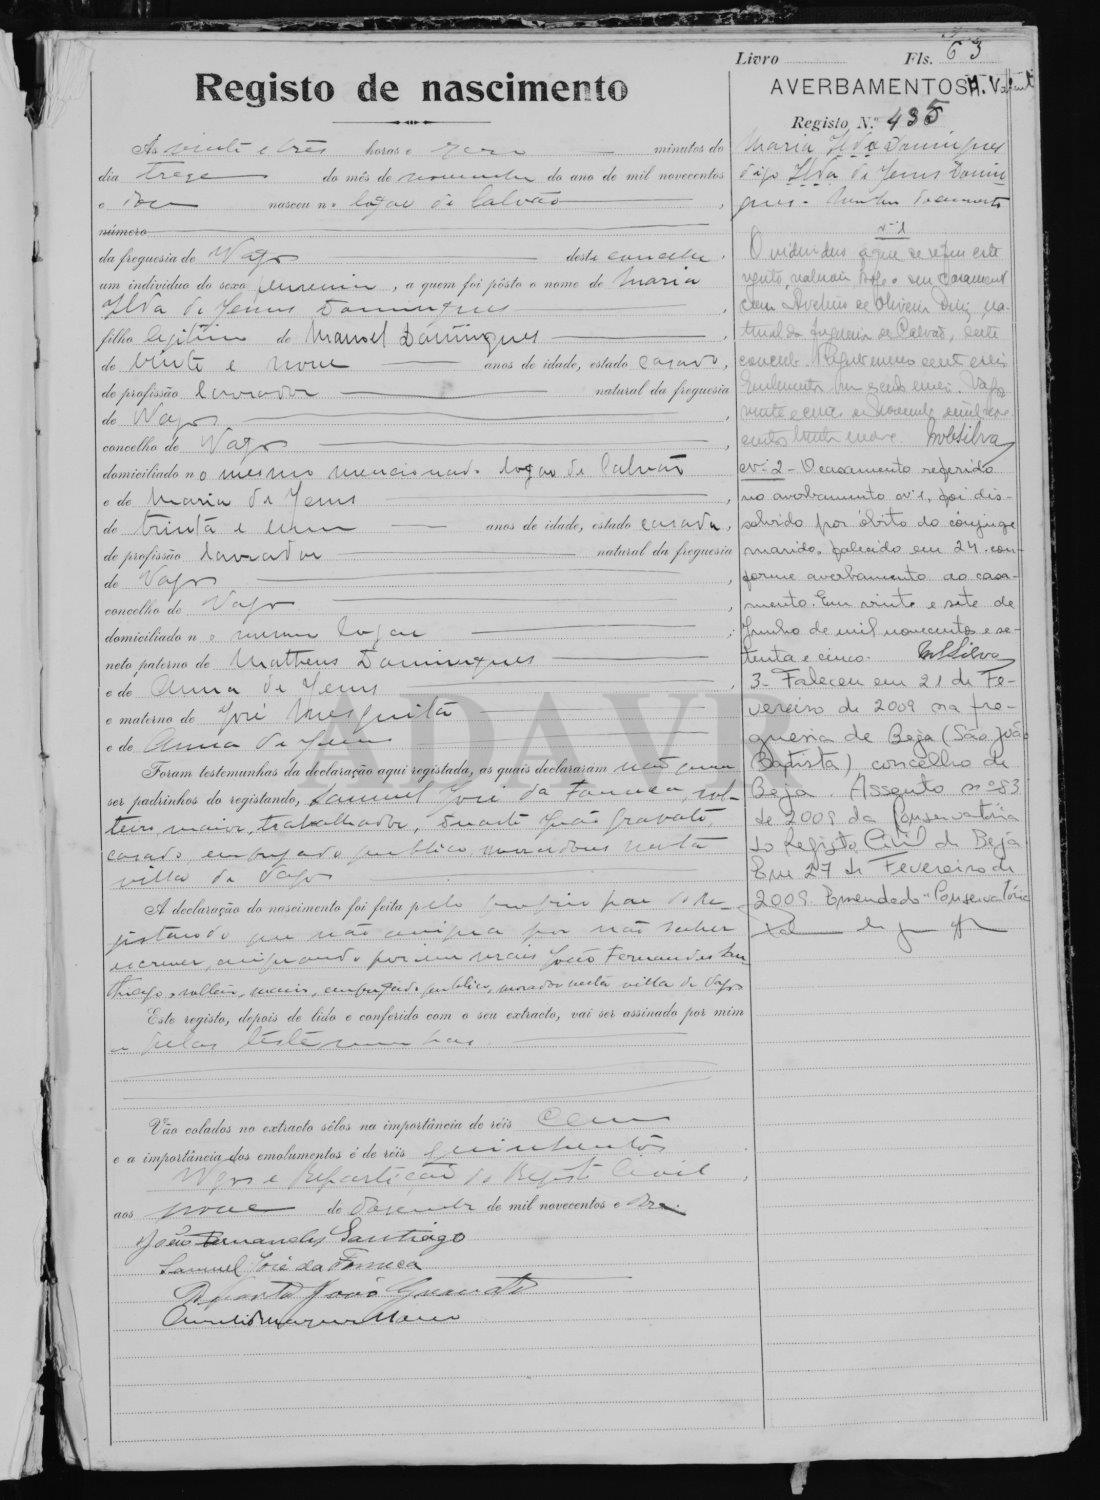 Livro Fls. 63
Registo de nascimento
As vinte e três horas e zero minutos do
dia treze do mês de novembro do ano de mil novecentos
e doze nasceu no logar de Calvão,
número
da freguesia de Vagos deste concelho,
um indivíduo do sexo feminino, a quem foi pôsto o nome de Maria
Ilda de Jesus Domingues,
filho legitimo de Manoel Domingues
de vinte e nove anos de idade, estado casado,
de profissão lavrador natural da freguesia
de Vagos,
concelho de Vagos
domiciliado no mesmo mencionado logar de Calvão
e de Maria de Jesus,
de trinta e um anos de idade, estado casada,
de profissão lavradora natural da freguesia
de Vagos,
concelho de Vagos,
domiciliado no mesmo logar;
neto paterno de Matheus Domingues
e de Anna de Jesus,
e materno de José Mesquita
e de Anna de Jesus
Foram testemunhas da declaração aqui registada, as quais declararam não quererem
ser padrinhos do registando, Samuel José da Fonseca, sol-
teiro, maior, trabalhador, Duarte João Gravato,
casado, empregado publico, moradores nesta
villa de Vagos
A declaração do nascimento foi feita pelo proprio pae do re-
gistando que não assigna por não saber
escrever, assignando por isso João Fernandes San-
thiago, solteiro, maior, empregado publico, morador nesta villa de Vagos
Este registo, depois de lido e conferido com o seu extracto, vai ser assinado por mim
e pelas testemunhas
Vão colados no extracto sêlos na importância de réis Cem
e a importância dos emolumentos é de réis quinhentos
Vagos e Repartição do Registo Civil,
aos nove de Dezembro de mil novecentos e doze.
João Fernandes Santiago
Samuel José da Fonseca
Duarte João Gravato
AVERBAMENTOS
Registo N.º 435
Maria Ilda Domingues
digo Ilda de Jesus Domin
gues.
nº 1
O individuo a que se refere este
com Avelino de Oliveira Diniz na-
tural da freguesia de Calvão, deste
concelho.
MSilva
nº 2 - O casamento referido
no averbamento nº 1, foi dis-
solvido por óbito do cônjuge
marido, falecido em 24, con-
forme averbamento ao casa-
mento. Em vinte e sete de
Junho de mil novecentos e se-
tenta e cinco. MSilva
3 - Faleceu em 21 de Fe-
vereiro de 2009 na fre-
guesia de Beja (São João
Baptista) concelho de
Beja. Assento nº 83
de 2009 da Conservatória
do Registo Civil de Beja
Em 27 de Fevereiro de
2009. Emendado "Conservatória
ADAVR